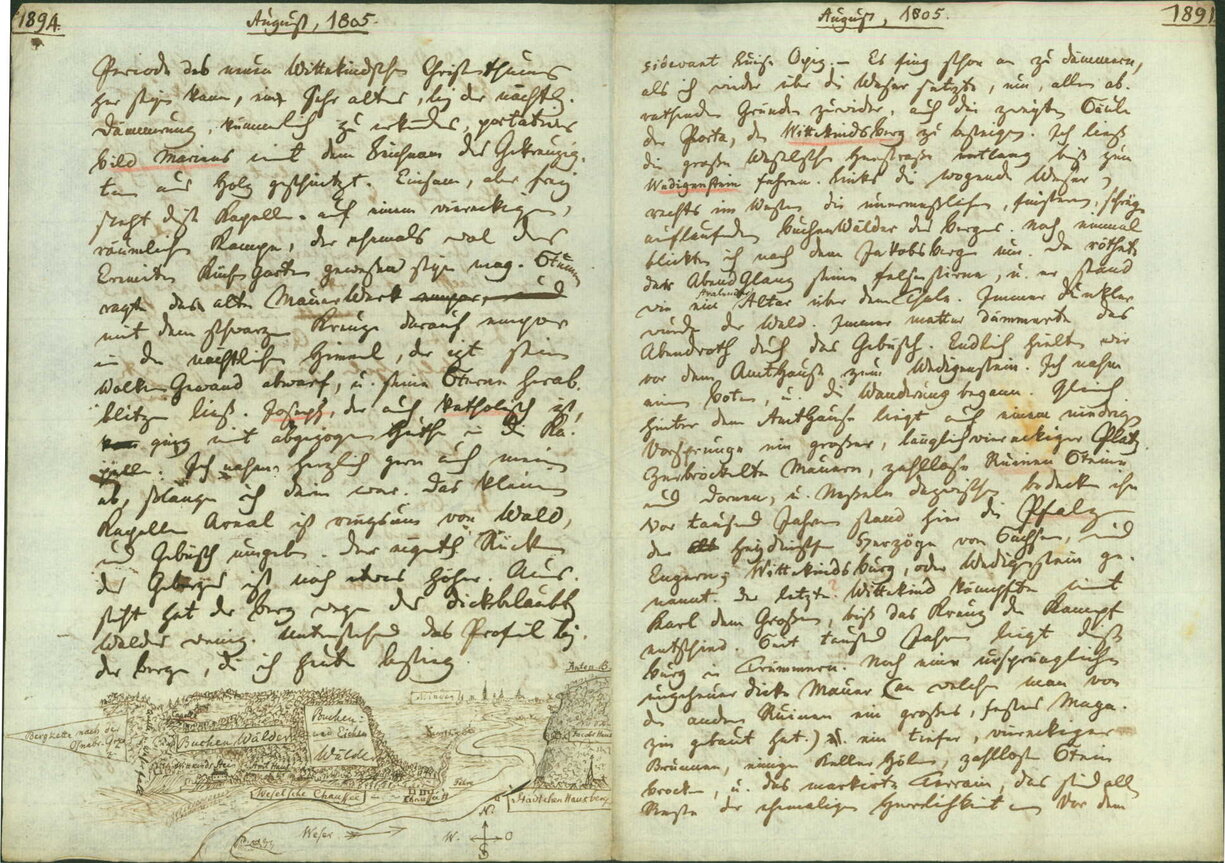 1894.
August, 1805.
Periode des neuen Wittekindschen Christenthums
her seyn kann, und sehr altes, bey der nächtl.
Dämmerung, kümmerlich zu erkennendes, portatives
bild Mariens mit dem Leichnam des Gekreuzig-
ten aus Holz geschnitzt. Einsam, aber frey
steht diese Kapelle auf einem viereckigen,
räumlichen Kampe, der ehemals wol des
Eremiten Küchgarten gewesen seyn mag. Stumm
ragt das alte MauerWerk
mit dem schwarzen Kreuze darauf empor
in den nächtlichen Himmel, der izt sein
WolkenGewand abwarf, u. seine Sterne herab-
blitzen ließ. Joseph, der auch katholisch ist,
ging mit abgezogenem Huthe in die Ka-
pelle. Ich nahm herzlich gern auch meinen
ab, solange ich darin war. Das kleine
Kapellen Areal ist ringsum von Wald,
und Gebüsch umgeben. Der eigentl. Rücken
des Geberges ist noch etwas höher. Aus-
sicht hat der berg wegen der dickbelaubten
Wälder wenig. Untenstehend das Profil bey-
der berge, die ich heute bestieg.
Anton B.
Minden
Bergkette nach der
Osnabr. Grenze
Buchen Wälder
Buchen-
und Eichen
Wälde
Amthaus
Weselsche Chaussee
Fähre
Städtchen Hausberge
Weser
N.
W. O
S
1891
August, 1805.
cidevant Huise Opiz. – Es fing schon an zu dämmern,
als ich wieder über die Weser setzte, um, allen ab-
rathenden Gründen zuwider, auch die zweyte Säule
der Porta, den Wittekindsberg zu besteigen. Ich ließ
die große Weselsche Heerstraße entlang biß zum
Wedigenstein fahren. Links die wogende Weser,
rechts im Westen die unermeßlichen, finstern, schräg
auflaufenden buchenWälder des berges. Noch einmal
blickte ich nach dem Jakobsberge um. Da röthete
der AbendGlanz seine felsenstirne, u. er stand
wie ein Altar über dem Thale. Immer dunkler
wurde der Wald. Immer matter dämmerte das
Abendroth durch das Gebüsch. Endlich hielten wir
vor dem Amthause zum Wedigenstein. Ich nahm
einen boten, u. die Wanderung begann. Gleich
hinter dem Amthause liegt auf einem niedrigen
Vorsprunge ein großer, länglich viereckiger Platz.
Zerbröckelte Mauern, zahllose Ruinen Steine
und Dornen, u. Nesseln dazwischen bedecken ihn
Vor tausend Jahren stand hier die Pfalz
der heydnischen Herzöge von Sachsen, und
Engern, Wittekindsburg, oder Wedigenstein ge-
nannt. Der letzte Wittekind kämpfte mit
Karl dem Großen, biß das Kreuz den Kampf
entschied. Seit tausend Jahren liegt diese
burg in Trümmern. Noch eine ursprüngliche
ungeheuer dicke Mauer (an welche man von
den andern Ruinen ein großes, festes Maga-
zin gebaut hat.) ein tiefer, viereckiger
Brunnen, einige Keller Hölen, zahllose Stein
brocken, u. das markirte Terrain, das sind alle
Reste der ehemaligen Herrlichkeit. Vor dem